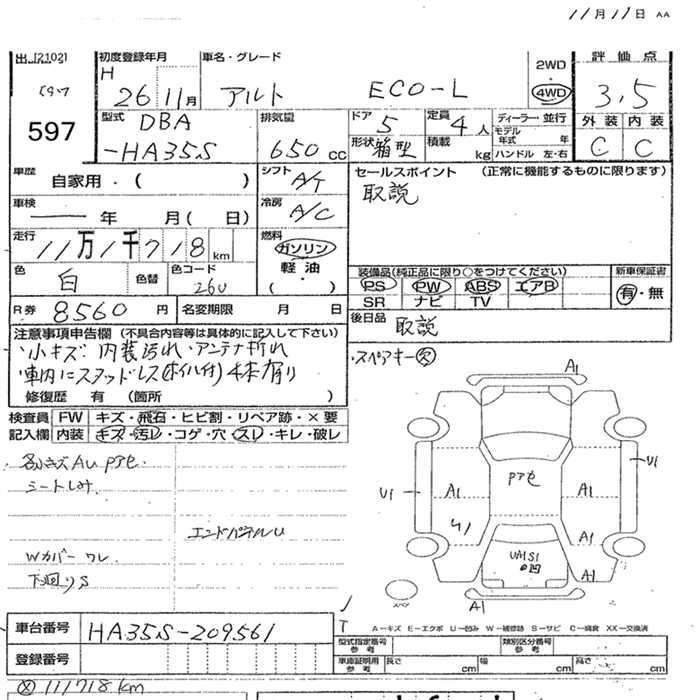 11月11日 AA
出[2102]
597
初度登録年月
H 26 11月
車名・グレード
アルト ECO-L
2WD
4WD
評価点
3,5
外装 内装
C C
型式 DBA
-HA35S
排気量
650cc
ドア 5
形状 箱型
定員 4人
積載 kg
ディーラー・並行
モデル年式 年
ハンドル 左・右
車歴
自家用・( )
車検
年 月( 日)
走行
11万1千718km
色 白
色替
色コード
26U
シフト A/T
冷房 A/C
燃料
ガソリン
軽油
・( )
セールスポイント (正常に機能するものに限ります)
取説
装備品(純正品に限り○をつけてください)
PS PW ABS エアB
SR ナビ TV
新車保証書
有・無
R券 8560円
名変期限 月 日
後日品 取説
注意事項申告欄 (不具合内容等は具体的に記入して下さい)
・小キズ 内装汚れ・アンテナ折れ
・車内にスタッドレス(ホイル付)4本有り
修復歴 有 (箇所 )
・スペアキー欠
検査員 FW キズ・飛石・ヒビ割・リペア跡・×要
記入欄 内装 キズ・汚レ・コゲ・穴・スレ・キレ・破レ
各小キズAU Pアセ
シートしみ
エンドパネルU
Wカバー ワレ
下廻りS
A1
U1
U1
Pアセ
A1
A1
A1
UA1S1
凹
A1
A1
スペア
A-キズ E-エクボ U-凹み W-補修跡 S-サビ C-腐食 XX-交換済
車台番号 HA35S-209561
登録番号
型式指定番号 参考
類別区分番号 参考
車庫証明用 参考
長さ cm 幅 cm 高さ cm
※111718km